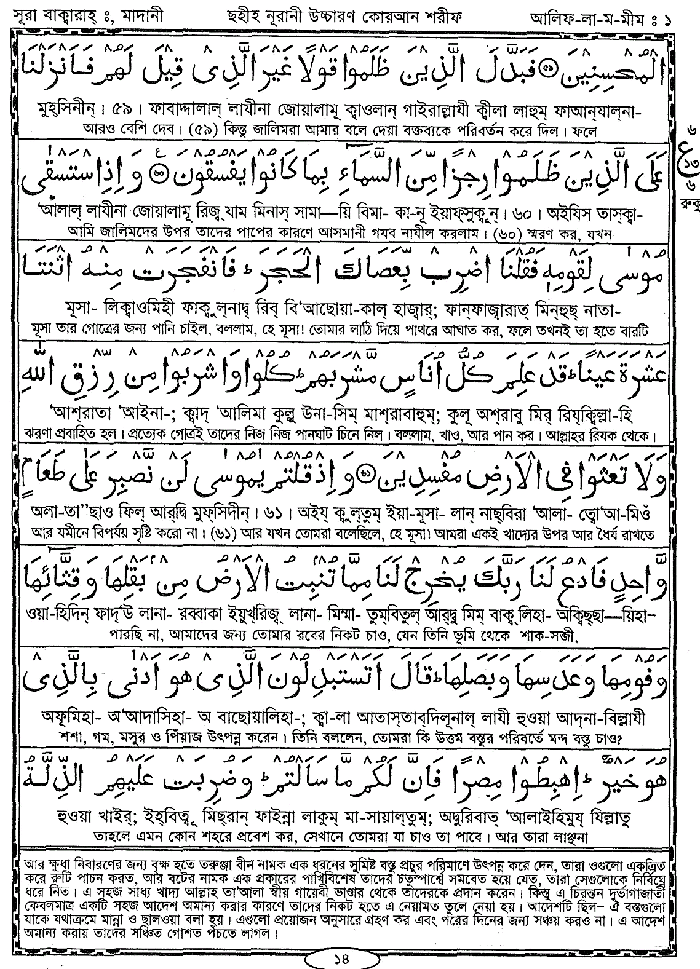 সূরা বাক্বারাহ্ ঃ, মাদানী ছহীহ নূরানী উচ্চারণ কোরআন শরীফ আলিফ-লা-ম-মীম ঃ ১
الْمُحْسِنِيْنَ ۝ فَبَدَّلَ الَّذِيْنَ ظَلَمُوْا قَوْلًا غَيْرَ الَّذِىْ قِيْلَ لَهُمْ فَاَنْزَلْنَا
মুহ্সিনীন্ । ৫৯ । ফাবাদ্দালাল্ লাযীনা জোয়ালামূ ক্বাওলান্ গাইরাল্লাযী ক্বীলা লাহুম্ ফাআন্যাল্না-
আরও বেশি দেব। (৫৯) কিন্তু জালিমরা আমার বলে দেয়া বক্তব্যকে পরিবর্তন করে দিল। ফলে
عَلَى الَّذِيْنَ ظَلَمُوْا رِجْزًا مِّنَ السَّمَآءِ بِمَا كَانُوْا يَفْسُقُوْنَ ۝ وَ اِذِ اسْتَسْقٰى
৬
ع
১৩
৬
রুকু
'আলাল্ লাযীনা জোয়ালামূ রিজ্ব্যাম মিনাস্ সামা—য়ি বিমা- কা-নূ ইয়াফ্সুক্বূন্। ৬০। অইযিস্ তাস্ক্বা-
আমি জালিমদের উপর তাদের পাপের কারণে আসমানী গযব নাযীল করলাম। (৬০) স্মরণ কর, যখন
مُوْسٰى لِقَوْمِهٖ فَقُلْنَا اضْرِبْ بِّعَصَاكَ الْحَجَرَ ؕ فَانْفَجَرَتْ مِنْهُ اثْنَتَا
মূসা- লিক্বাওমিহী ফাক্বুল্নাদ্ব্ রিব্ বি'আছোয়া-কাল্ হাজ্বার্; ফান্ফাজ্বারাত্ মিন্হুছ্ নাতা-
মূসা তার গোত্রের জন্য পানি চাইল, বললাম, হে মূসা! তোমার লাঠি দিয়ে পাথরে আঘাত কর, ফলে তখনই তা হতে বারটি
عَشْرَةَ عَيْنًا ؕ قَدْ عَلِمَ كُلُّ اُنَاسٍ مَّشْرَبَهُمْ ؕ كُلُوْا وَ اشْرَبُوْا مِنْ رِّزْقِ اللّٰهِ
'আশ্রাতা 'আইনা-; ক্বাদ্ 'আলিমা কুল্লু উনা-সিম্ মাশ্রাবাহুম্; কুলূ অশ্রাবূ মির্ রিয্ক্বিল্লা-হি
ঝরণা প্রবাহিত হল। প্রত্যেক গোত্রই তাদের নিজ নিজ পানঘাট চিনে নিল। বললাম, খাও, আর পান কর। আল্লাহর রিযক থেকে।
وَلَا تَعْثَوْا فِى الْاَرْضِ مُفْسِدِيْنَ ۝ وَ اِذْ قُلْتُمْ يٰمُوْسٰى لَنْ نَّصْبِرَ عَلٰى طَعَامٍ
অলা-তা'ছাও ফিল্ আর্দ্বি মুফ্সিদীন্। ৬১। অইয্ ক্বুল্তুম্ ইয়া-মূসা- লান্ নাছ্বিরা 'আলা- ত্বো'আ-মিওঁ
আর যমীনে বিপর্যয় সৃষ্টি করো না। (৬১) আর যখন তোমরা বলেছিলে, হে মূসা! আমরা একই খাদ্যের উপর আর ধৈর্য রাখতে
وَّاحِدٍ فَادْعُ لَنَا رَبَّكَ يُخْرِجْ لَنَا مِمَّا تُنْۢبِتُ الْاَرْضُ مِنْۢ بَقْلِهَا وَ قِثَّآئِهَا
ওয়া-হিদিন্ ফাদ্'উ লানা- রব্বাকা ইয়ুখ্রিজ্ব্ লানা- মিম্মা- তুম্বিতুল্ আর্দ্বু মিম্ বাক্ব্ লিহা- অক্বিছ্ছা—য়িহা-
পারছি না, আমাদের জন্য তোমার রবের নিকট চাও, যেন তিনি ভূমি থেকে শাক-সব্জী,
وَ فُوْمِهَا وَ عَدَسِهَا وَ بَصَلِهَا ؕ قَالَ اَتَسْتَبْدِلُوْنَ الَّذِىْ هُوَ اَدْنٰى بِالَّذِىْ
অফূমিহা- অ'আদাসিহা- অ বাছোয়ালিহা-; ক্বা-লা আতাস্তাব্দিলূনাল্ লাযী হুওয়া আদ্না-বিল্লাযী
শশা, গম, মসুর ও পিঁয়াজ উৎপন্ন করেন। তিনি বললেন, তোমরা কি উত্তম বস্তুর পরিবর্তে মন্দ বস্তু চাও?
هُوَ خَيْرٌ ؕ اِهْبِطُوْا مِصْرًا فَاِنَّ لَكُمْ مَّا سَاَلْتُمْ ؕ وَ ضُرِبَتْ عَلَيْهِمُ الذِّلَّةُ
হুওয়া খাইর্; ইহ্বিত্বূ মিছ্রান্ ফাইন্না লাকুম্ মা-সায়াল্তুম্; অদ্বুরিবাত্ 'আলাইহিমুয্ যিল্লাতু
তাহলে এমন কোন শহরে প্রবেশ কর, সেখানে তোমরা যা চাও তা পাবে। আর তারা লাঞ্ছনা
আর ক্ষুধা নিবারণের জন্য বৃক্ষ হতে তরুঞ্জা বীন নামক এক ধরনের সুমিষ্ট বস্তু প্রচুর পরিমাণে উৎপন্ন করে দেন, তারা ওগুলো একত্রিত
করে রুটি পাচন করত, আর বটের নামক এক প্রকারের পাখিবিশেষ তাদের চতুষ্পার্শ্বে সমবেত হয়ে যেত, তারা সেগুলোকে নির্বিঘ্নে
ধরে নিত। এ সহজ সাধ্য খাদ্য আল্লাহ তা'আলা স্বীয় গায়েবী ভাণ্ডার থেকে তাদেরকে প্রদান করেন। কিন্তু এ চিরন্তন দুর্ভাগাজাতী
কেবলমাত্র একটি সহজ আদেশ অমান্য করার কারণে তাদের নিকট হতে এ নেয়ামত তুলে নেয়া হয়। আদেশটি ছিল– ঐ বস্তুগুলো
যাকে যথাক্রমে মান্না ও ছালওয়া বলা হয়। এগুলো প্রয়োজন অনুসারে গ্রহণ কর এবং পরের দিনের জন্য সঞ্চয় করও না। এ আদেশ
অমান্য করায় তাদের সঞ্চিত গোশত পঁচতে লাগল।
১৪